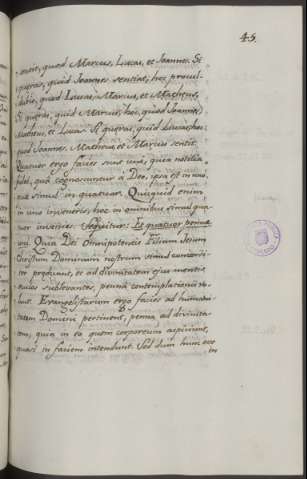 45.
sentit, quod Marcus, Lucas, et Joannes. Si
quæras, quid Joannes sentiat; hoc procul
dubio, quod Lucas, Marcus, et Matheus.
Si quæras, quid Marcus; hoc, quod Joannes,
Matheus, et Lucas. Si quæras, quid Lucas; hoc,
quod Joannes, Matheus, et Marcus sentit.
Quatuor ergo facies sunt uni, quia notitia
fidei, qua cognoscuntur à Deo, ipsa est in uno,
quæ simul in quatuor. Quidquid enim
in uno inveneris, hoc in omnibus simul qua-
tuor invenies. Sequitur: Et quatuor pennæ
uni. Quia Dei Omnipotentis Filium Jesum
Christum Dominum nostrum simul concordi-
ter prædicant, et ad divinitatem ejus mentis
oculos sublevantes, penna contemplationis vo-
lant. Evangelistarum ergo facies ad humani-
tatem Domini pertinent, penna ad divinita-
tem, quia in eo quem corporeum aspiciunt,
quasi in faciem intendunt. Sed dum hunc esse